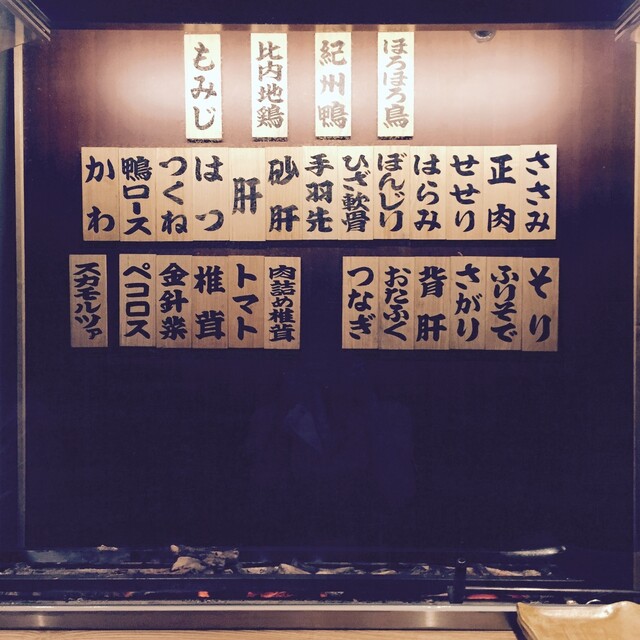 ほろほろ鳥
紀州鴨
比内地鶏
もみじ
ささみ
正肉
せせり
はらみ
ぼんじり
ひざ軟骨
手羽先
砂肝
肝
はつ
つくね
鴨ロース
かわ
そり
ふりそで
さがり
背肝
おたふく
つなぎ
肉詰め椎茸
トマト
椎茸
金針菜
ペコロス
スカモルツァ